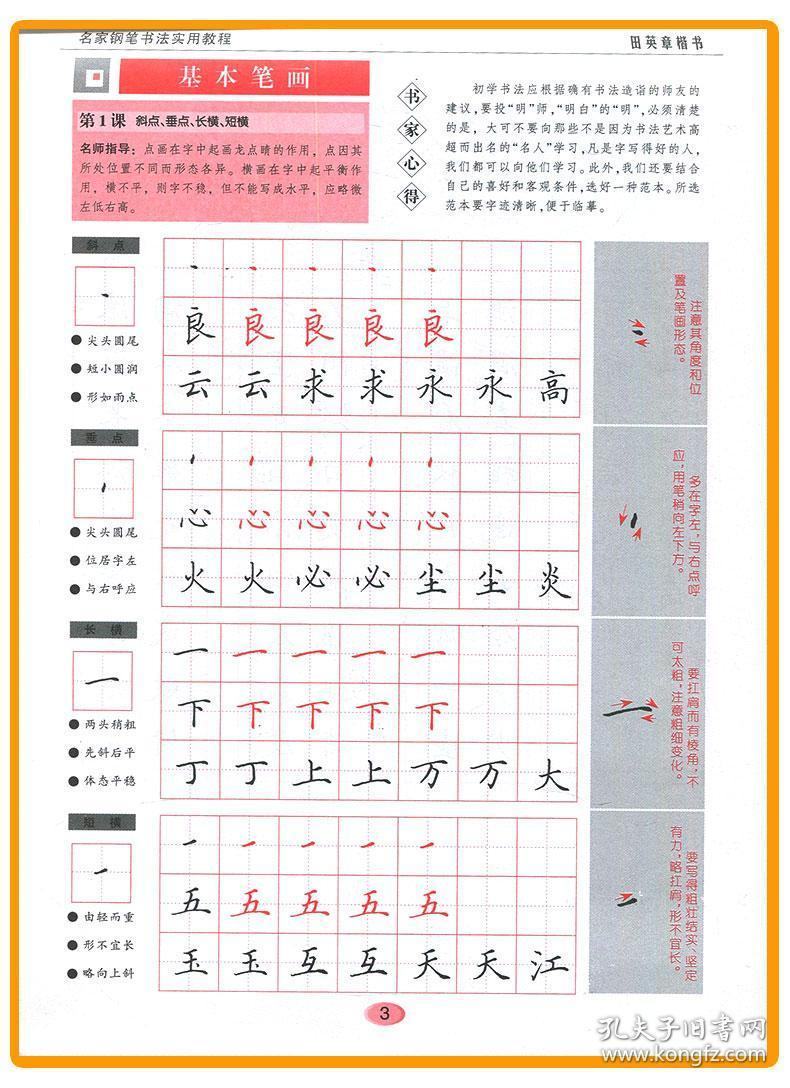 名家钢笔书法实用教程
田英章楷书
基本笔画
第1课 斜点、垂点、长横、短横
名师指导：点画在字中起画龙点睛的作用，点因其
所处位置不同而形态各异。横画在字中起平衡作
用，横不平，则字不稳，但不能写成水平，应略微
左低右高。
书家心得
初学书法应根据确有书法造诣的师友的
建议，要投“明”师，“明白”的“明”，必须清楚
的是，大可不要向那些不是因为书法艺术高
超而出名的“名人”学习，凡是字写得好的人，
我们都可以向他们学习。此外，我们还要结合
自己的喜好和客观条件，选好一种范本。所选
范本要字迹清晰，便于临摹。
斜点
●尖头圆尾
●短小圆润
●形如雨点
丶丶丶丶丶
良良良良良
云云求求永永高
注意其角度和位
置及笔画形态。
垂点
●尖头圆尾
●位居字左
●与右呼应
心心心心心
火火必必尘尘炎
多在字左，与右点呼
应，用笔稍向左下方。
长横
●两头稍粗
●先斜后平
●体态平稳
一一一一一
下下下下下
丁丁上上万万大
要扛肩而有棱角，不
可太粗，注意粗细变化。
短横
●由轻而重
●形不宜长
●略向上斜
一一一一一
五五五五五
玉玉互互天天江
要写得粗壮结实、坚定
有力，略扛肩，形不宜长。
3
孔夫子旧书网
www.kongfz.com